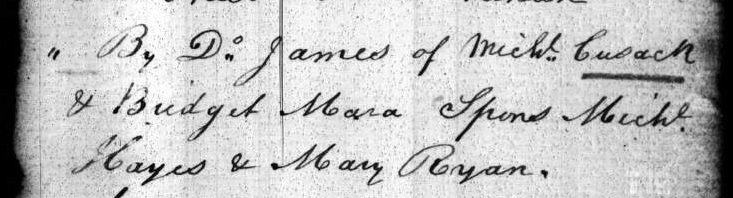 " By Do. James of Michl. Cusack
& Bridget Mara Spons Michl.
Hayes & Mary Ryan.